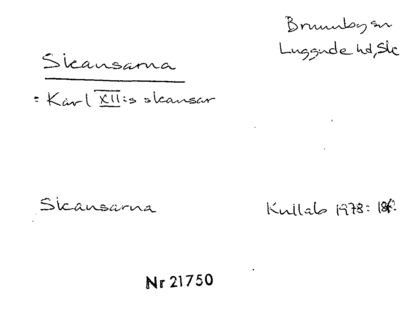 Brunnby sn
Luggude hd, Sk
Skansarna
= Karl XII:s skansar
Skansarna
Kullab 1978:
Nr 21750